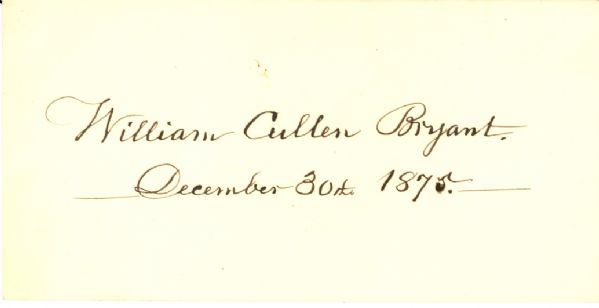 William Cullen Bryant.
December 30th 1875.